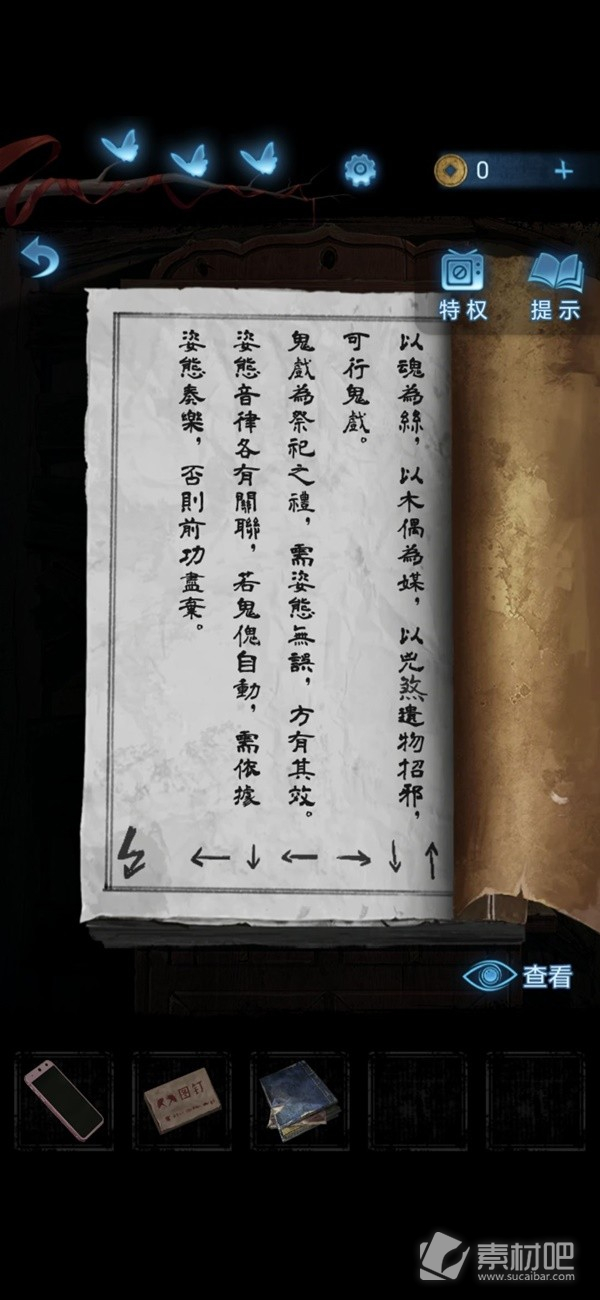 0
特权
提示
以魂為絲，以木偶為媒，以兇煞遺物招邪，
可行鬼戲。
鬼戲為祭祀之禮，需姿態無誤，方有其效。
姿態音律各有關聯，若鬼傀自動，需依據
姿態奏樂，否則前功盡棄。
↑↓→←↓←
查看
图钉
素材吧
www.sucaibar.com